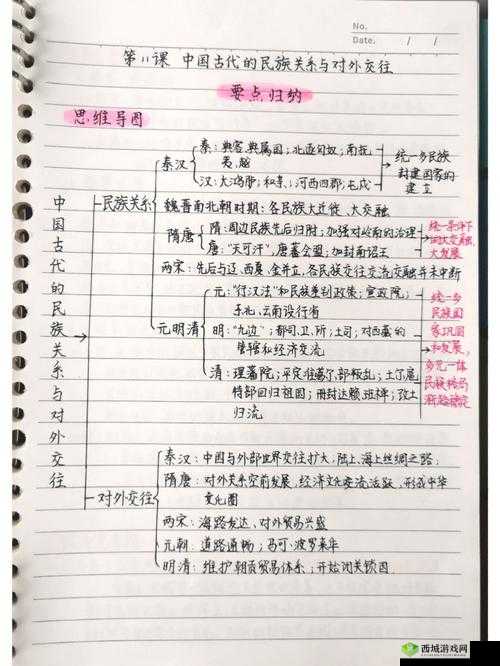 No.
Date. / /
第11课 中国古代的民族关系与对外交往
要点归纳
思维导图
中国古代的民族关系与对外交往
民族关系
秦汉
秦:典客、典属国;北逐匈奴;南抚
夷、越
汉:大鸿胪;和亲;河西四郡;屯戍
统一多民族
封建国家的
建立
魏晋南北朝时期:各民族大迁徙、大交融
隋唐
隋:周边民族先后归附;加强对岭南的治理
唐:"天可汗";唐蕃会盟;加封南诏王
统一条件下
的大交融、
大发展
两宋:先后与辽、西夏、金并立,各民族交往交流交融并未中断
元明清
元:"行汉法"和民族差别政策;宣政院;
东北、云南设行省
明:"九边";都司卫、所;土司;对西藏的
管辖和经济交流
清:理藩院;平定准噶尔部叛乱;土尔扈
特部回归祖国;册封达赖、班禅;改土
归流
统一多
民族国
家巩固
和发展,
多元一体
民族格局
渐趋稳定
对外交往
秦汉:中国与外部世界交往扩大,陆上、海上丝绸之路
隋唐:对外关系空前发展,经济文化交流活跃,形成中华
文化圈
两宋:海路发达、对外贸易兴盛
元朝:道路通畅;马可·波罗来华
明清:维护朝贡贸易体系;开始闭关锁国
西城游戏网